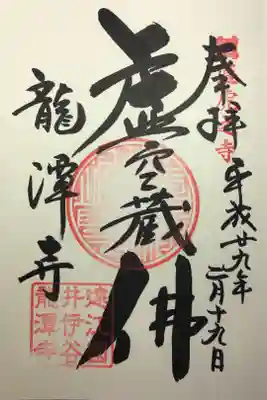 奉拝
平成廿九年二月十九日
虚空蔵佛
龍潭寺
遠江国
井伊谷
龍潭寺